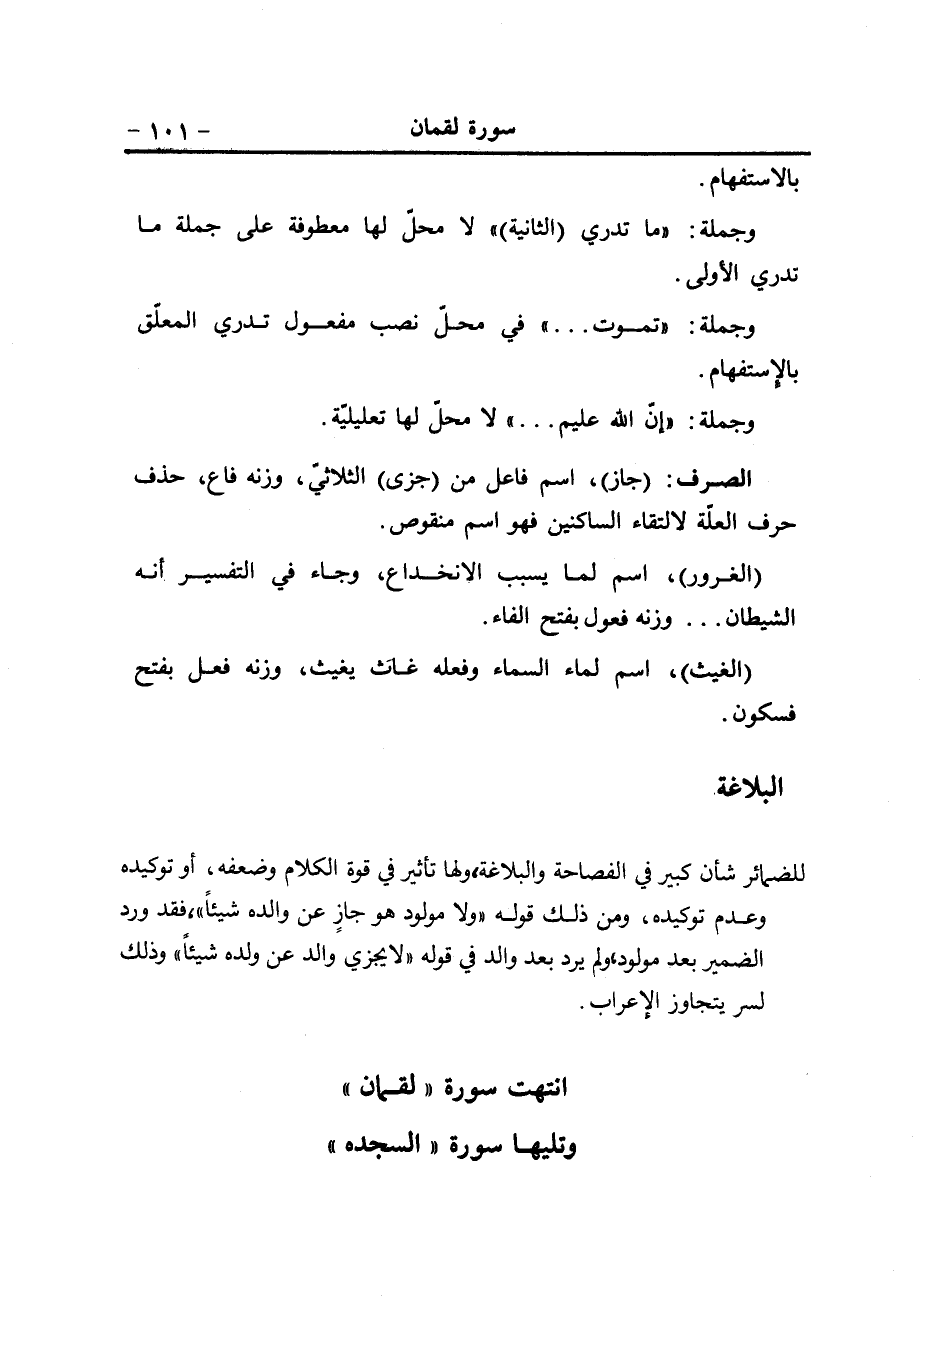 سورة لقمان - ١٠١ -
بالاستفهام.
وجملة: «ما تدري (الثانية)» لا محلّ لها معطوفة على جملة ما
تدري الأولى.
وجملة: «تمـوت...» في محـلّ نصب مفعـول تـدري المعلّق
بالإستفهام.
وجملة: «إنّ الله عليم...» لا محلّ لها تعليليّة.
الصرف: (جاز)، اسم فاعل من (جزى) الثلاثيّ، وزنه فاع، حذف
حرف العلّة لالتقاء الساكنين فهو اسم منقوص.
(الغرور)، اسم لما يسبب الانخداع، وجاء في التفسير أنه
الشيطان... وزنه فعول بفتح الفاء.
(الغيث)، اسم لماء السماء وفعله غاث يغيث، وزنه فعل بفتح
فسكون.
البلاغة
للضمائر شأن كبير في الفصاحة والبلاغة،ولها تأثير في قوة الكلام وضعفه، أو توكيده
وعدم توكيده، ومن ذلك قوله «ولا مولود هو جازٍ عن والده شيئاً»،فقد ورد
الضمير بعد مولود،ولم يرد بعد والد في قوله «لايجزي والد عن ولده شيئاً» وذلك
لسر يتجاوز الإعراب.
انتهت سورة « لقمان »
وتليها سورة « السجده »